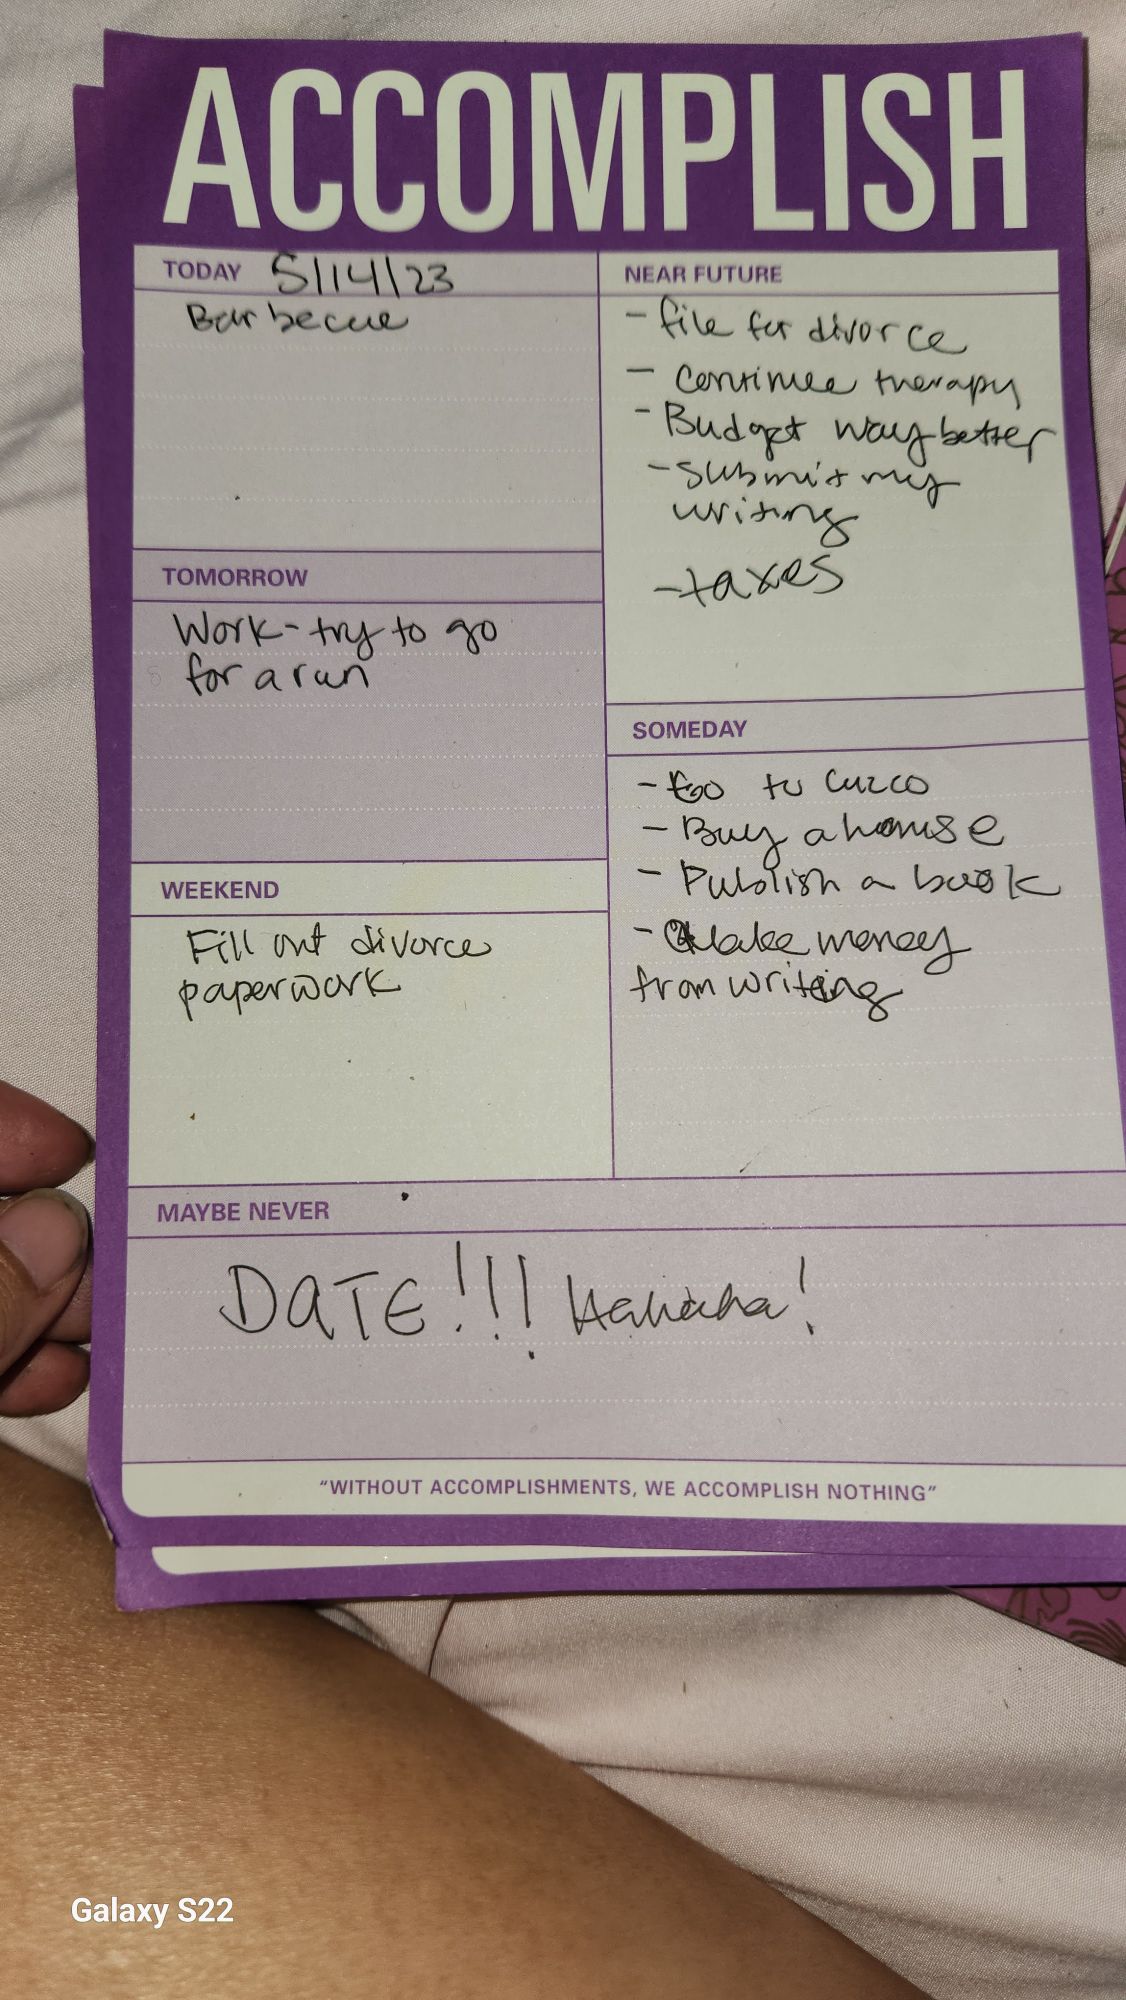 ACCOMPLISH
TODAY 5/14/23
Barbecue
TOMORROW
Work - try to go
for a run
WEEKEND
Fill out divorce
paperwork
NEAR FUTURE
- file for divorce
- Continue therapy
- Budget way better
- Submit my
writing
- taxes
SOMEDAY
- Go to Cuzco
- Buy a house
- Publish a book
- Make money
from writing
MAYBE NEVER
DATE!!! Hahaha!
"WITHOUT ACCOMPLISHMENTS, WE ACCOMPLISH NOTHING"
Galaxy S22